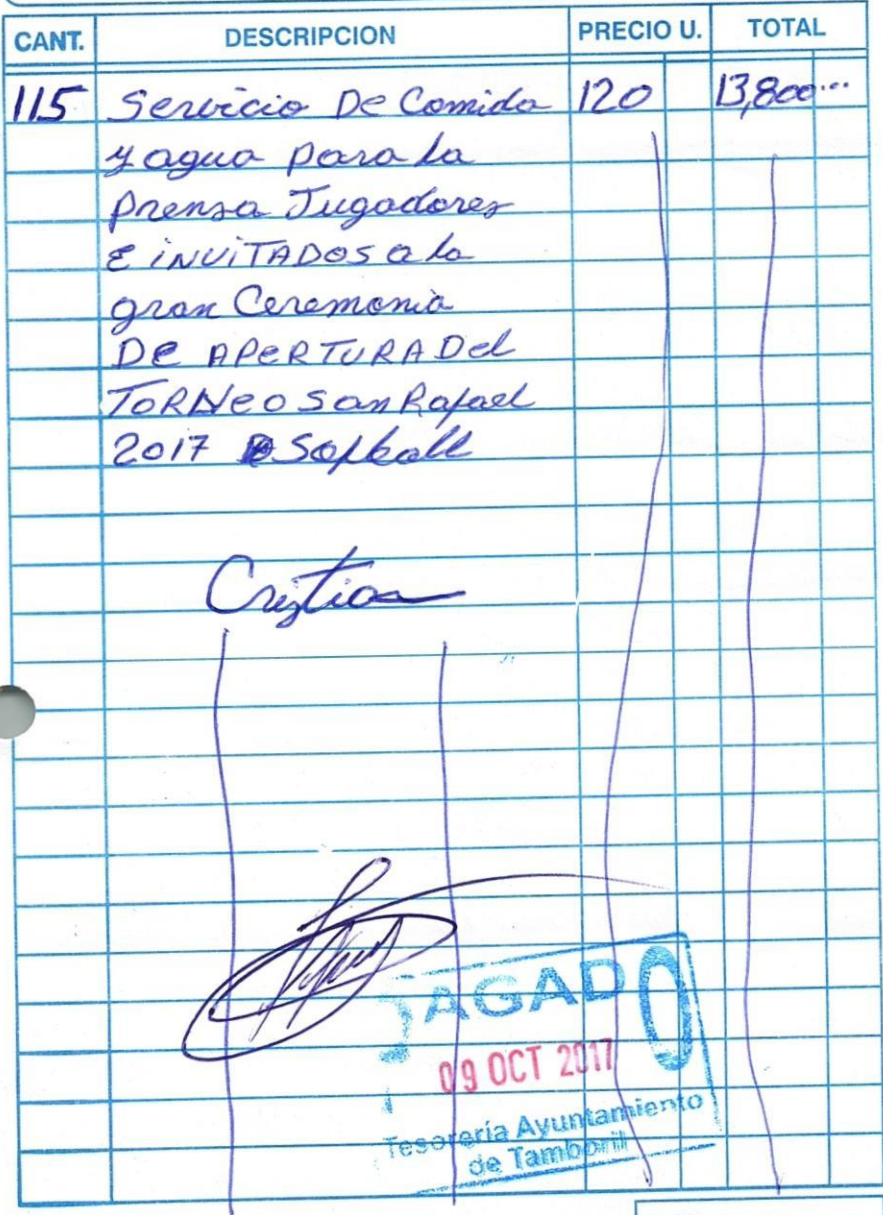 CANT. DESCRIPCION PRECIO U. TOTAL
115 Servicio De Comida 120 13,800...
y agua para la
prensa Jugadores
E iNViTADOS a la
gran Ceremonia
DE APERTURA Del
TORNeO San Rafael
2017 Sofball
Cristian
PAGADO
09 OCT 2017
Tesorería Ayuntamiento
de Tamboril